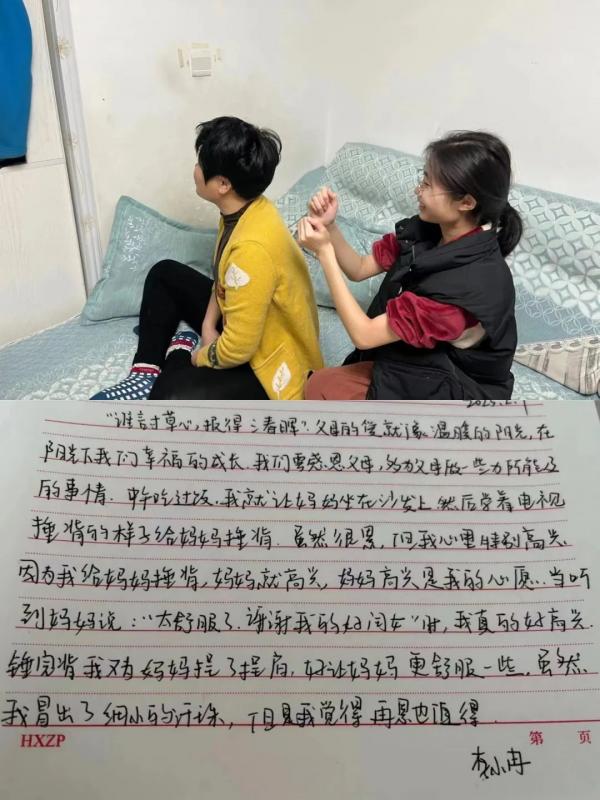 2025.1.1
"谁言寸草心,报得三春晖".父母的爱就像温暖的阳光,在
阳光下我们幸福的成长.我们要感恩父母,多为父母做一些力所能及
的事情.中午吃过饭,我就让妈妈坐在沙发上,然后学着电视
捶背的样子给妈妈捶背.虽然很累,但我心里特别高兴.
因为我给妈妈捶背,妈妈就高兴,妈妈高兴是我的心愿.当听
到妈妈说:"太舒服了,谢谢我的好闺女"时,我真的好高兴.
锤完背我又为妈妈捏了捏肩,好让妈妈更舒服一些.虽然
我冒出了细小的汗珠,但是我觉得再累也值得.
HXZP 第 页
李小冉